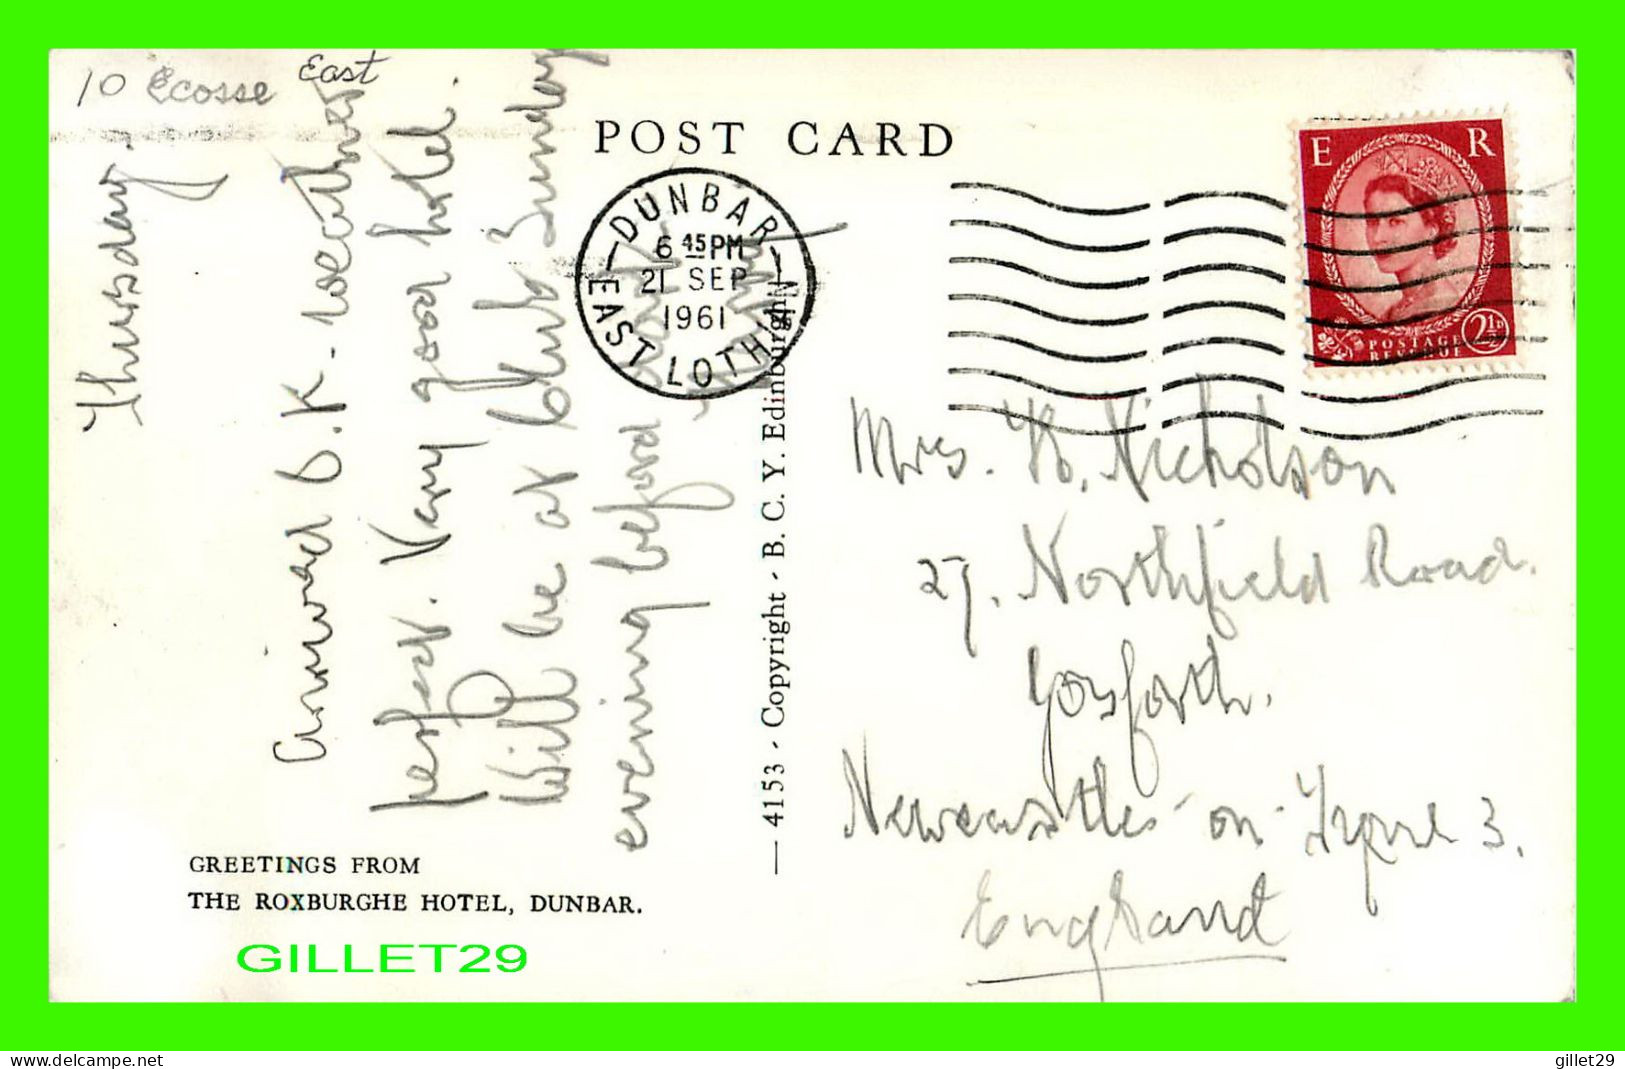 10 Ecosse East
POST CARD
Thursday.
Arrived O.K. - weather
perfect. Very good hotel.
Will be at club Sunday
evening before
DUNBAR
6 45 PM
21 SEP
1961
EAST LOTHIAN
E R
POSTAGE
REVENUE
2½D
— 4153 - Copyright - B. C. Y. Edinburgh
Mrs. N. Nicholson
27, Northfield Road.
Gosforth.
Newcastle-on-Tyne 3.
England
GREETINGS FROM
THE ROXBURGHE HOTEL, DUNBAR.
GILLET29
www.delcampe.net
gillet29